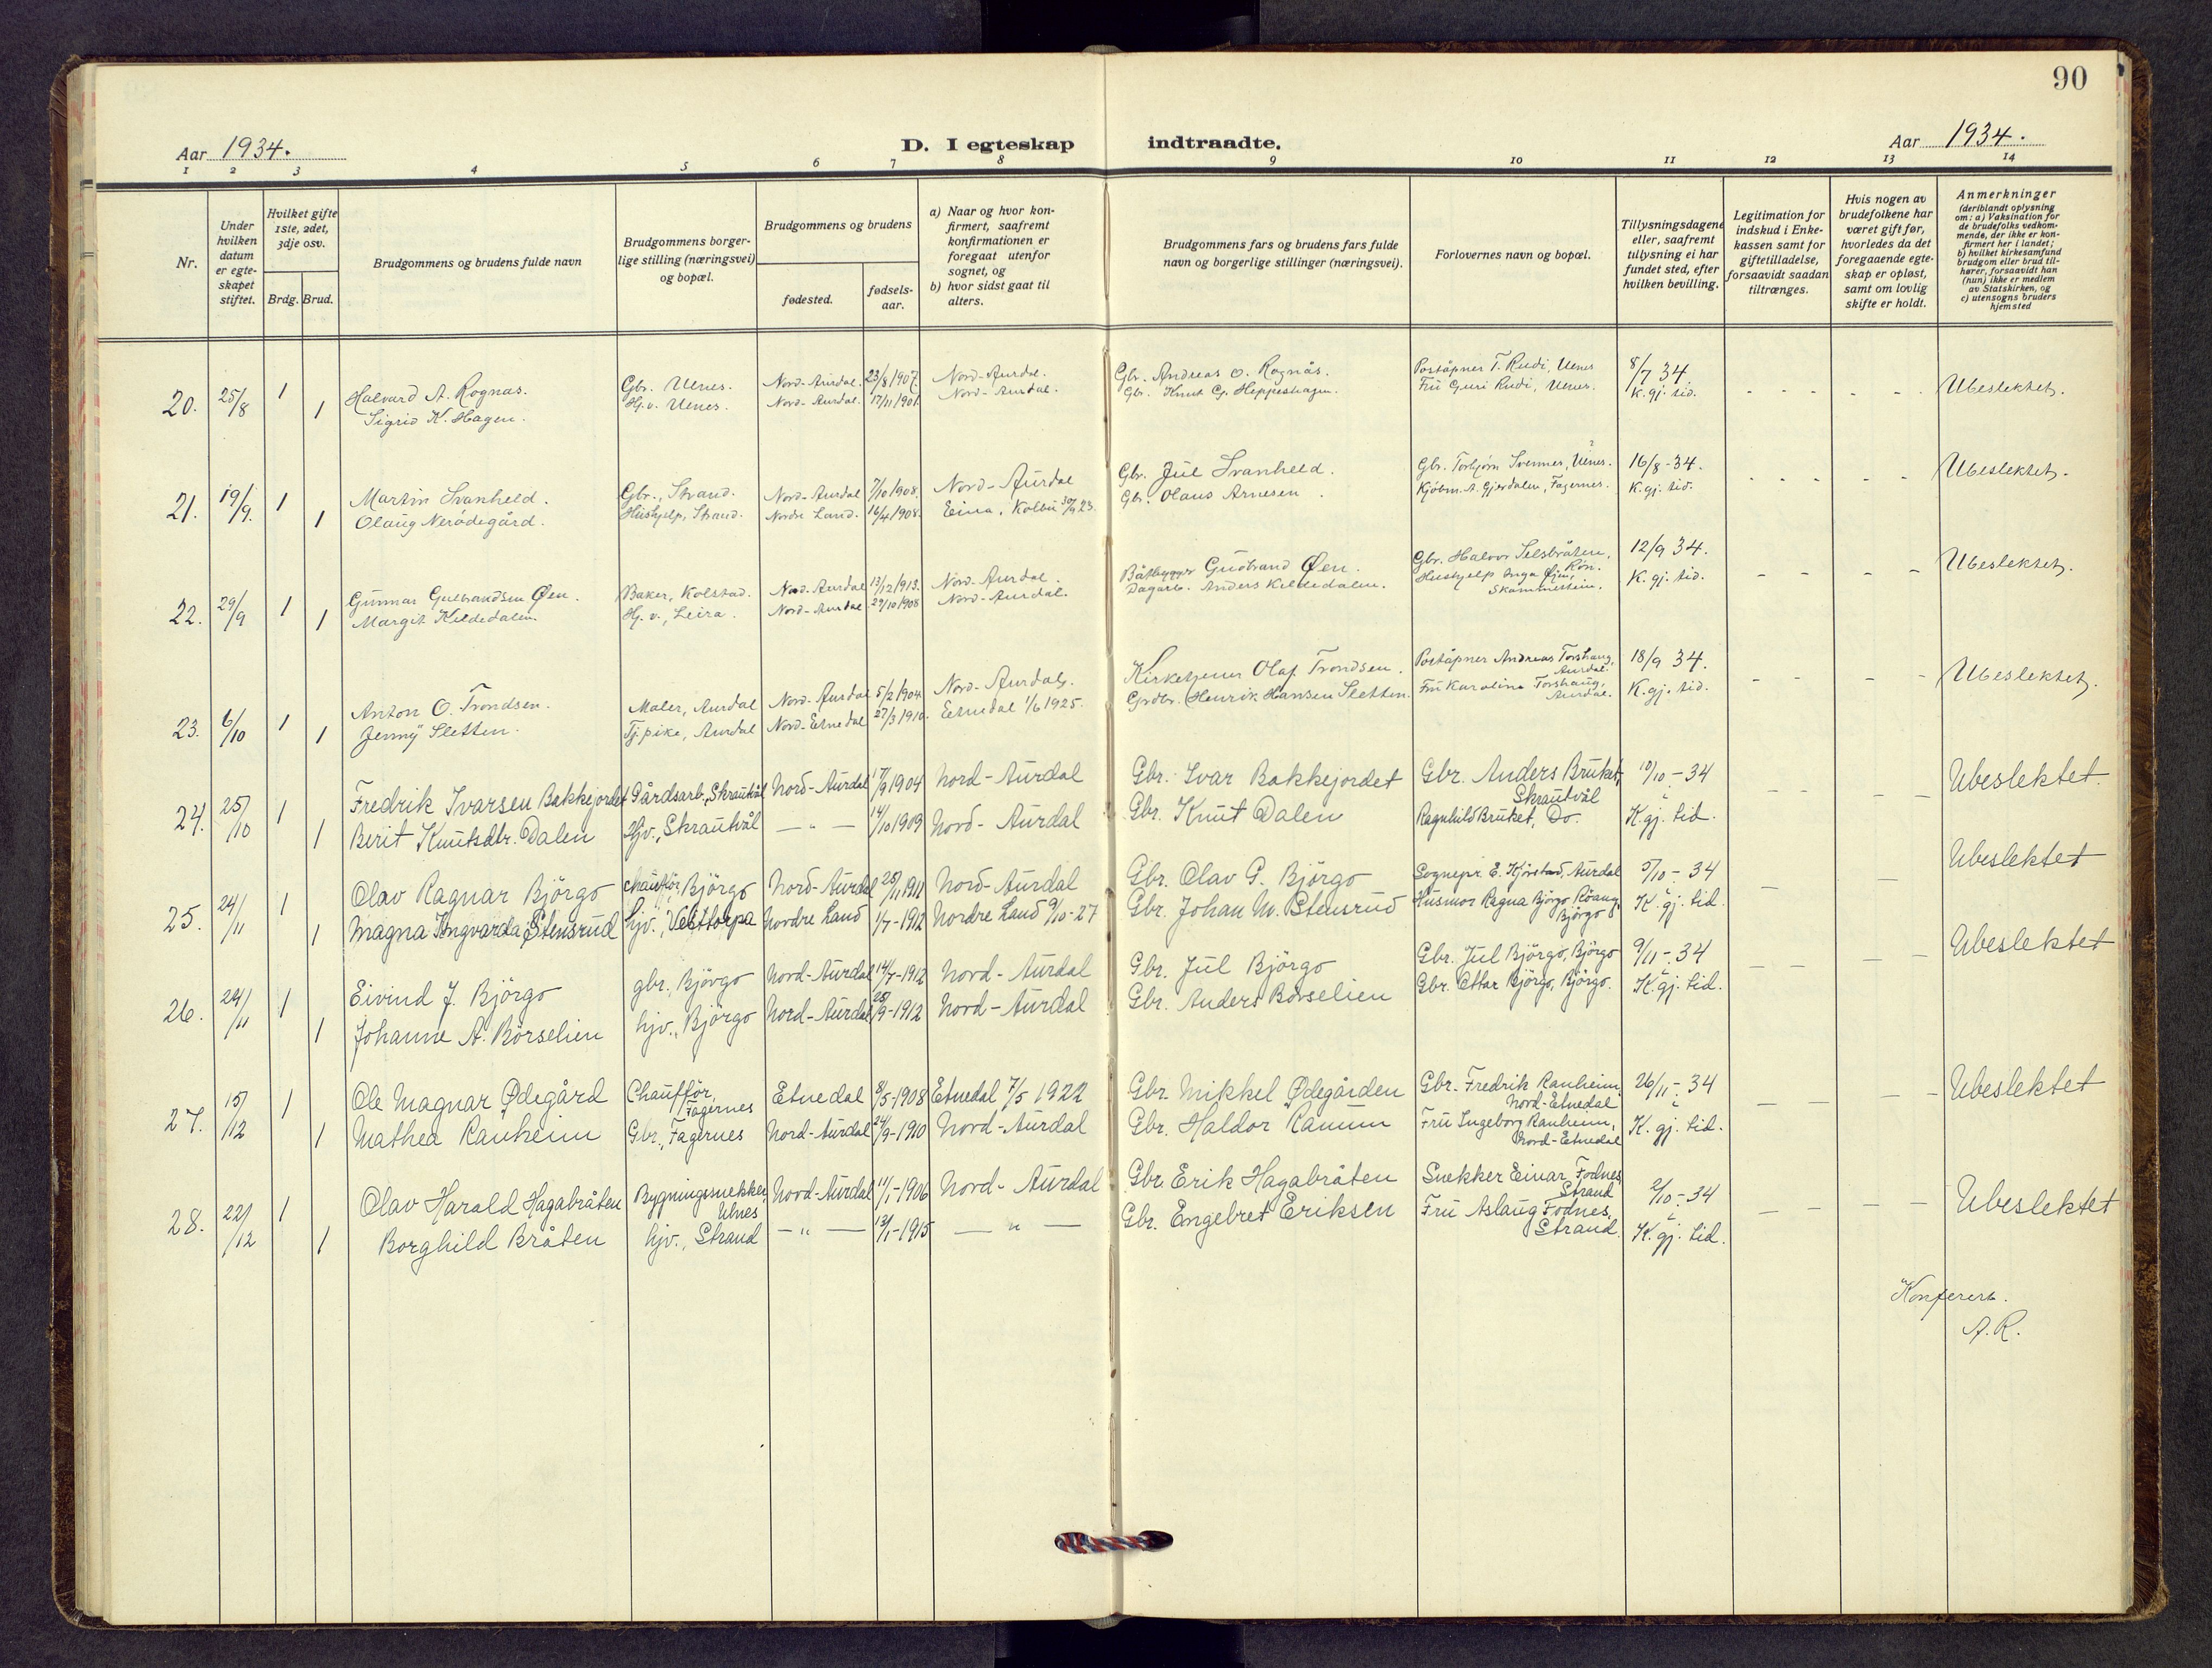 90
Aar 1934.
D. I egteskap indtraadte.
Aar 1934.
1 2 3 4 5 6 7 8 9 10 11 12 13 14
Nr.
Under hvilken datum er egte-skapet stiftet.
Hvilket gifte 1ste, 2det, 3dje osv.
Brdg. Brud.
Brudgommens og brudens fulde navn
Brudgommens borger-lige stilling (næringsvei) og bopæl.
Brudgommens og brudens
fødested.
fødsels-aar.
a) Naar og hvor kon-firmert, saafremt konfirmationen er foregaat utenfor sognet, og
b) hvor sidst gaat til alters.
Brudgommens fars og brudens fars fulde navn og borgerlige stillinger (næringsvei).
Forlovernes navn og bopæl.
Tillysningsdagene eller, saafremt tillysning ei har fundet sted, efter hvilken bevilling.
Legitimation for indskud i Enke-kassen samt for giftetilladelse, forsaavidt saadan tiltrænges.
Hvis nogen av brudefolkene har været gift før, hvorledes da det foregaaende egte-skap er opløst, samt om lovlig skifte er holdt.
Anmerkninger
(deriblandt oplysning om: a) Vaksination for de brudefolks vedkom-mende, der ikke er kon-firmert her i landet; b) hvilket kirkesamfund brudgom eller brud til-hører, forsaavidt han (hun) ikke er medlem av Statskirken, og c) utensogns bruders hjemsted
20. 25/8 1 Halvard A. Rognås. Gbr. Ulnes. Nord-Aurdal. 23/8 1907. Nord-Aurdal. Gbr. Andreas O. Rognås. Poståpner T. Rudi, Ulnes 8/7 34 Ubeslektet.
1 Sigrid K. Hagen. Hj.v. Ulnes. Nord-Aurdal. 17/11 1901. Nord-Aurdal. Gbr. Knut G. Heppeshagen. Fru Guri Rudi, Ulnes. K. gj. tid. - - - - -
21. 19/9. 1 Martin Svanheld. Gbr., Strand. Nord-Aurdal 7/10 1908. Nord-Aurdal Gbr. Jul Svanheld. Gbr. Torbjørn Svennes, Ulnes. 16/8-34. Ubeslektet.
1 Olaug Nerødegård. Hushjelp, Strand. Nordre Land. 16/4 1908. Eina, Kolbu 30/9 23. Gbr. Olaus Arnesen. Kjøbm. A. Gjerdalen, Fagernes. K. gj. tid. - - - - -
22. 29/9 1 Gunnar Gudbrandsen Øen. Baker, Kolstad. Nord-Aurdal 13/12 1913. Nord-Aurdal. Båtbygger Gudbrand Øen. Gbr. Halvor Selsbråten, Røn. 12/9 34. Ubeslektet.
1 Margit Kildedalen. Hj. v., Leira. Nord-Aurdal 29/10 1908 Nord-Aurdal. Dagarb. Anders Kildedalen. Hushjelp Inga Øen, Skammestein. K. gj. tid. - - - -
23. 6/10 1 Anton O. Trondsen. Maler, Aurdal Nord-Aurdal 5/2 1904 Nord-Aurdal. Kirketjener Olaf Trondsen. Poståpner Andreas Torshaug, Aurdal. 18/9 34. Ubeslektet.
1 Jenny Sletten. Tj.pike, Aurdal Nord-Etnedal 27/3 1910. Etnedal 1/6 1925. Grdbr. Henrik Hansen Sletten. Fru Karoline Torshaug, Aurdal. K. gj. tid. - - - -
24. 25/10 1 Fredrik Ivarsen Bakkejordet Gårdsarb. Skrautvål Nord-Aurdal 17/9 1904 Nord-Aurdal Gbr. Ivar Bakkejordet Gbr. Anders Bruket, Skrautvål 10/10-34 Ubeslektet.
1 Berit Knutsdtr. Dalen Hjv., Skrautvål — " — 14/10 1909 Nord-Aurdal Gbr. Knut Dalen Ragnhild Bruket, Do. K. gj. tid. - - - -
25. 24/11 1 Olav Ragnar Bjørgo Chauffør, Bjørgo Nord-Aurdal 25/1 1911 Nord-Aurdal Gbr. Olav G. Bjørgo Sognepr. E. Kjørstad, Aurdal 5/10-34 Ubeslektet
1 Magna Ingvarda Stensrud hjv., Vesttorpa Nordre Land 1/7-1912 Nordre Land 9/10-27 Gbr. Johan M. Stensrud Husmor Ragna Bjørgo, Bjørgo K. gj. tid. - -
26. 24/11 1 Eivind J. Bjørgo gbr., Bjørgo Nord-Aurdal 14/7-1912 Nord-Aurdal Gbr. Jul Bjørgo Gbr. Jul Bjørgo, Bjørgo 9/11-34 Ubeslektet
1 Johanne A. Børselien hjv., Bjørgo Nord-Aurdal 28/9-1912 Nord-Aurdal Gbr. Anders Børselien Gbr. Ottar Bjørgo, Bjørgo. K. gj. tid. - - - -
27. 15/12 1 Ole Magnar Ødegård Chauffør, Fagernes Etnedal 8/5-1908 Etnedal 7/5 1922 Gbr. Mikkel Ødegården Gbr. Fredrik Ranheim Nord-Etnedal 26/11-34 Ubeslektet
1 Mathea Ranheim Gbr., Fagernes Nord-Aurdal 24/9-1910 Nord-Aurdal Gbr. Haldor Ranum Fru Ingeborg Ranheim, Nord-Etnedal K. gj. tid. - - - -
28. 22/12 1 Olav Harald Hagabråten Bygningssnekker, Ulnes Nord-Aurdal 11/1-1906 Nord-Aurdal Gbr. Erik Hagabråten Snekker Einar Fodnes, Strand 2/10-34 Ubeslektet
1 Borghild Bråten hjv., Strand — " — 13/1-1915 — " — Gbr. Engebret Eriksen Fru Aslaug Fodnes, Strand. K. gj. tid. - - - -
Konferert.
A. R.